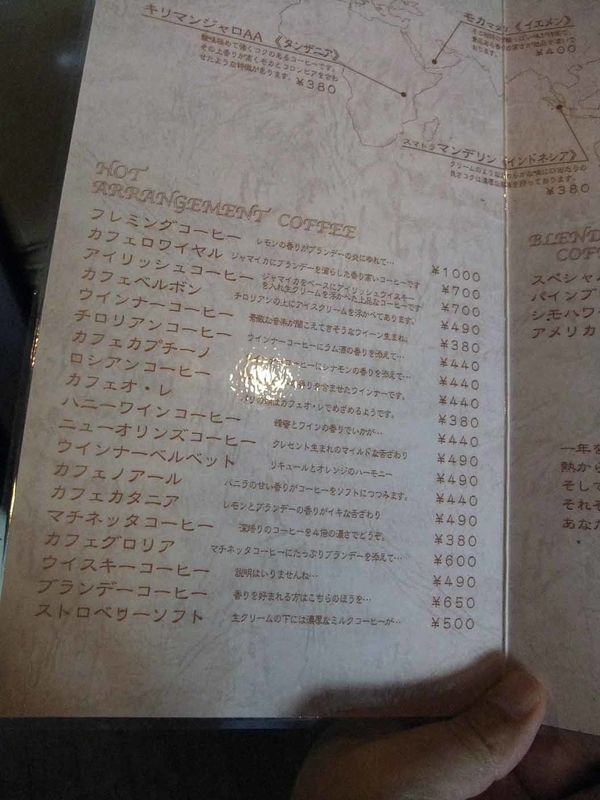 キリマンジャロAA 《タンザニア》
酸味極めて強くコクのあるコーヒーです。
その上香りが高くモカとコロンビアを合わ
せたような特徴があります。 ¥380
《イエメン》
¥400
スマトラマンデリン《インドネシア》
¥380
HOT
ARRANGEMENT COFFEE
フレミングコーヒー レモンの香りがブランデーの炎にゆれて… ¥1000
カフェロワイヤル ジャマイカにブランデーを濡らした香り高いコーヒーです ¥700
アイリッシュコーヒー ジャマイカをベースにアイリッシュウイスキー
を入れ生クリームを浮かべた上品なコーヒーです ¥700
カフェベルボン チロリアンの上にアイスクリームを浮かべてあります。 ¥490
ウインナーコーヒー 素敵な音楽が聞こえてきそうなウイーン生まれ。 ¥380
チロリアンコーヒー ウインナーコーヒーにラム酒の香りを添えて… ¥440
カフェカプチーノ コーヒーにシナモンの香りを添えて… ¥440
ロシアンコーヒー ませたウインナーです。 ¥440
カフェオ・レ カフェオ・レでめざめるようです。 ¥380
ハニーワインコーヒー 蜂蜜とワインの香りでいかが… ¥440
ニューオリンズコーヒー クレセント生まれのマイルドな舌ざわり ¥490
ウインナーベルベット リキュールとオレンジのハーモニー ¥490
カフェノアール バニラの甘い香りがコーヒーをソフトにつつみます。 ¥440
カフェカタニア レモンとブランデーの香りがイキな舌ざわり ¥490
マチネッタコーヒー 深煎りのコーヒーを4倍の濃さでどうぞ。 ¥380
カフェグロリア マチネッタコーヒーにたっぷりブランデーを添えて… ¥600
ウイスキーコーヒー 説明はいりませんね… ¥490
ブランデーコーヒー 香りを好まれる方はこちらのほうを… ¥650
ストロベリーソフト 生クリームの下には濃厚なミルクコーヒーが… ¥500
BLEND
COF
スペシャ
パインブ
シモハワ
アメリカ
一年を
熱から
そして
それぞ
あなた